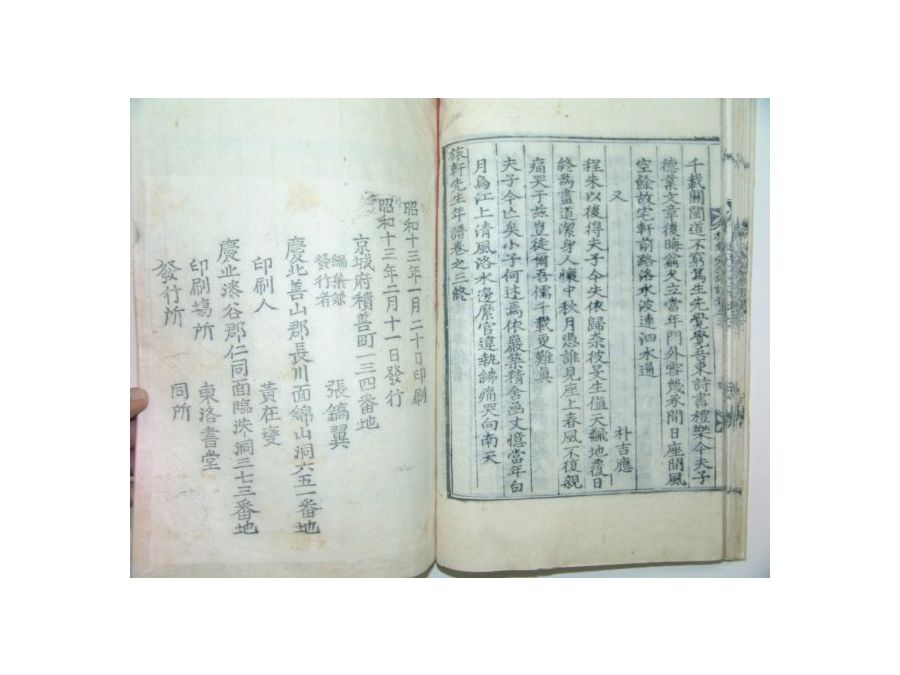 千載關閩道不窮篤生先覺覺吾東詩書禮樂今夫子
德業文章後晦翁久立當年門外雪幾承間日座間風
空餘故宅軒前路洛水波連泗水通
又
朴吉應
程朱以後得夫子今失依歸奈彼旻生值天飜地覆日
終爲盡道潔身人懷中秋月憑誰見座上春風不復親
痛哭于玆豈徒爾吾儒千載更難眞
夫子今亡矣小子何述焉依巖築精舍函丈憶當年白
月烏江上清風洛水邊縻官違執紼痛哭向南天
旅軒先生年譜卷之三終
昭和十三年一月二十日印刷
昭和十三年二月十一日發行
京城府積善町一三四番地
編集兼
發行者 張鎬翼
慶北善山郡長川面綿山洞六五一番地
印刷人 黃在燮
慶北漆谷郡仁同面臨洙洞三七三番地
印刷場所 東洛書堂
發行所 同所